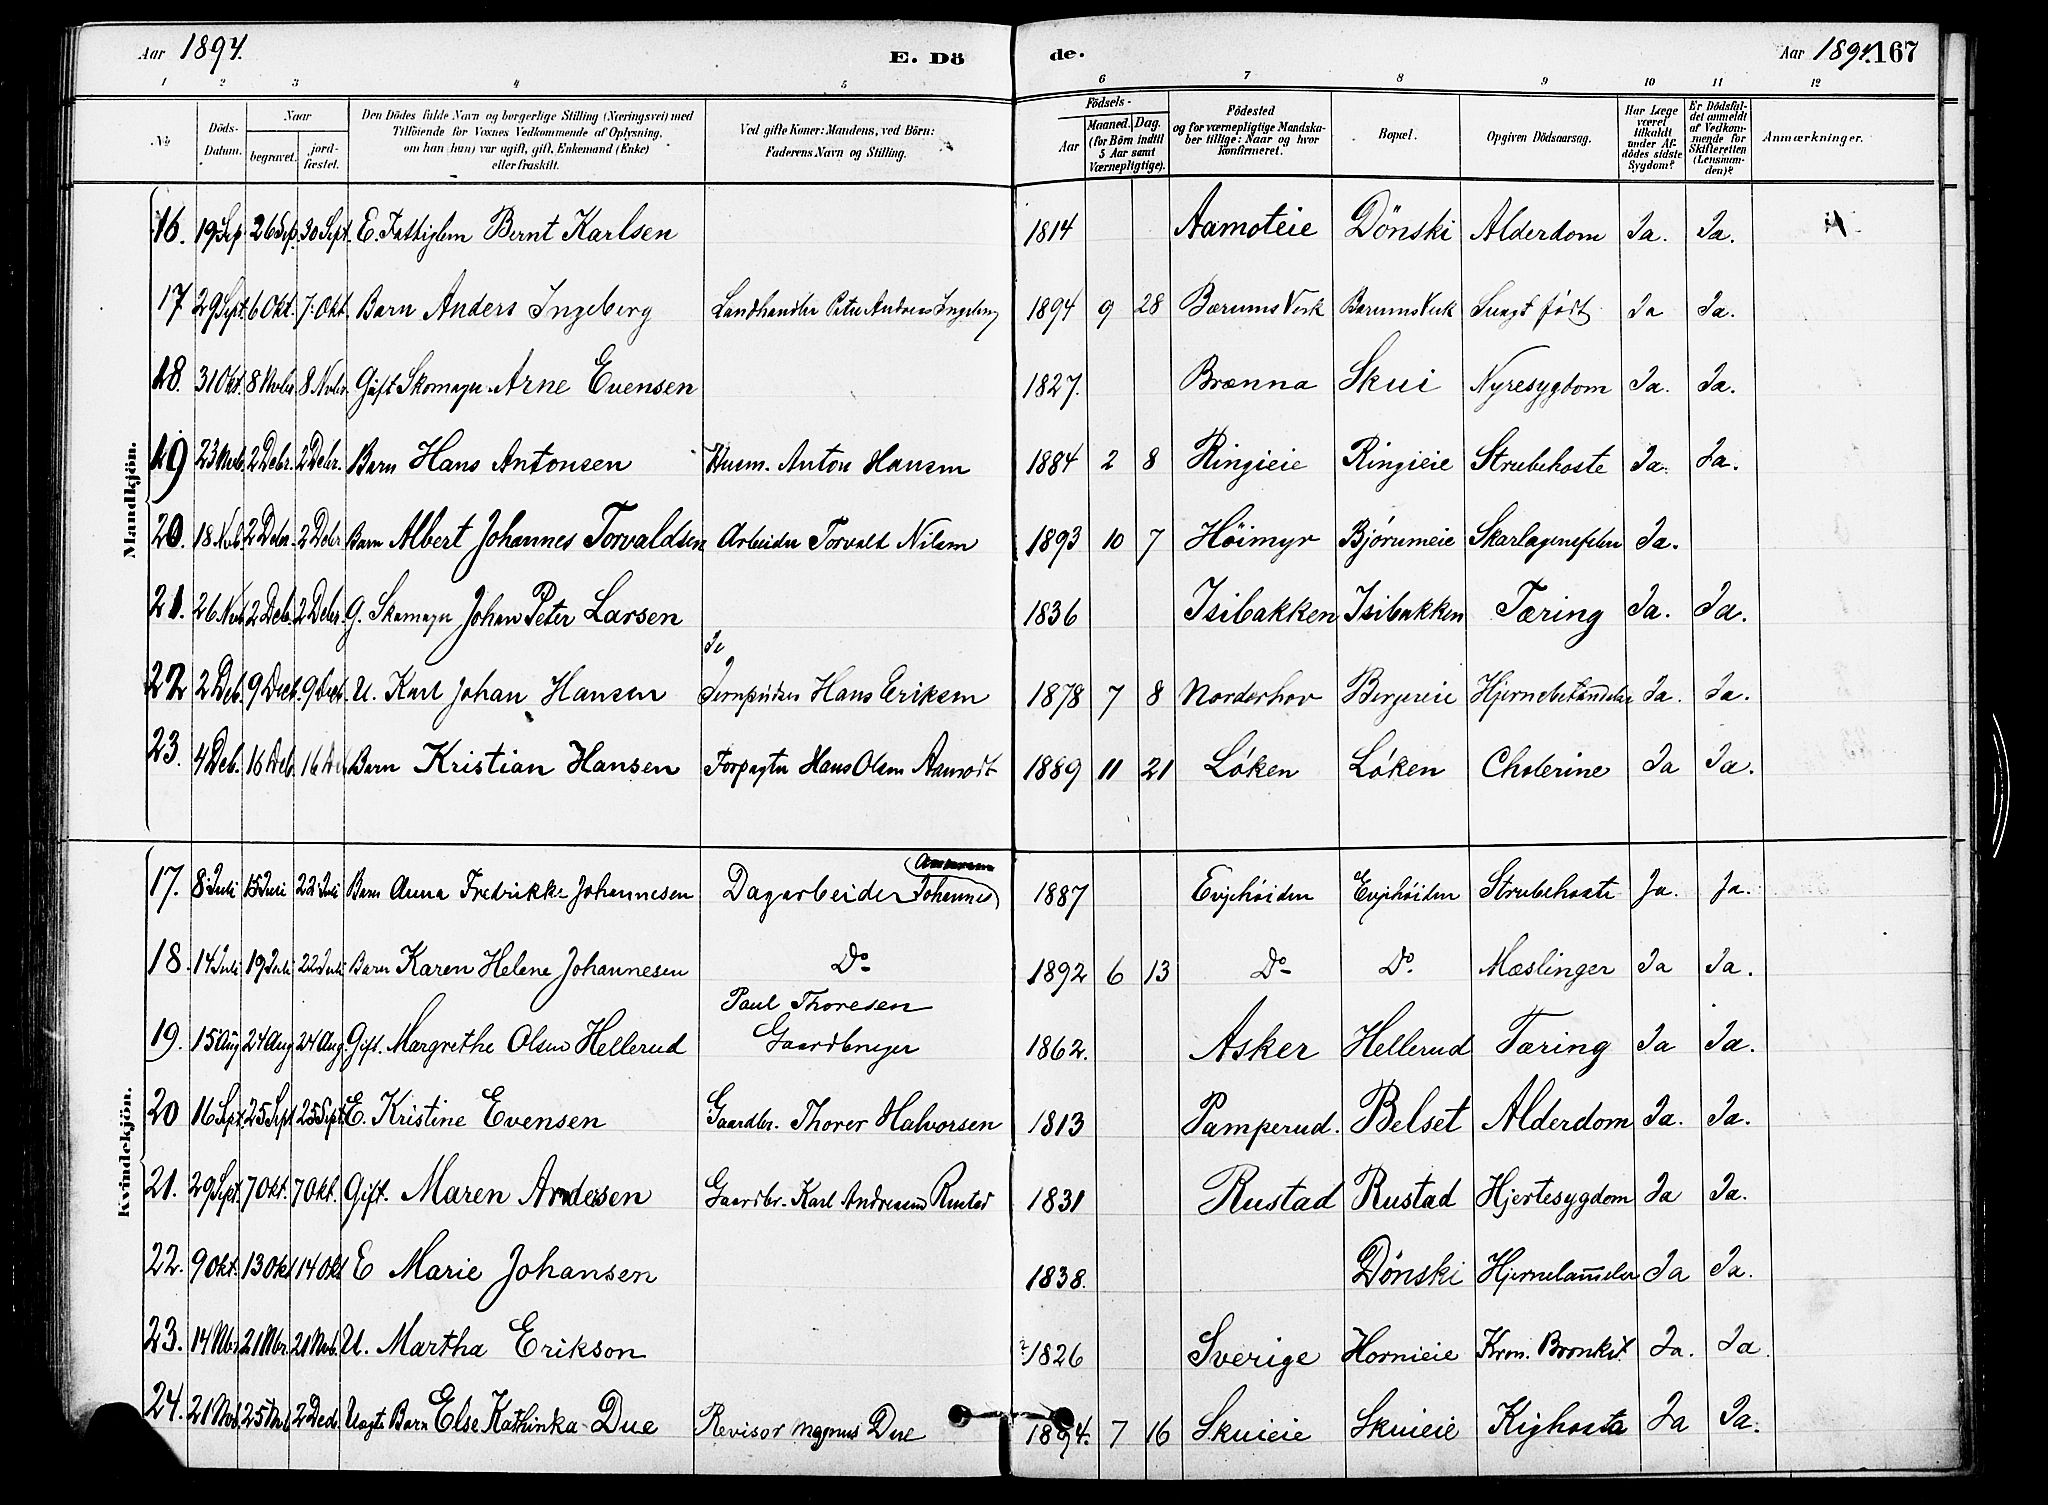 Aar 1894. E. Dö de. Aar 1894. 167
1 2 3 4 5 6 7 8 9 10 11 12
No. Döds-Datum. Naar begravet. jord-fæstet. Den Dödes fulde Navn og borgerlige Stilling (Næringsvei) med Tilföiende for Voxnes Vedkommende af Oplysning, om han (hun) var ugift, gift, Enkemand (Enke) eller fraskilt. Ved gifte Koner: Mandens, ved Börn: Faderens Navn og Stilling. Födsels- Aar Maaned. Dag. (for Börn indtil 5 Aar samt Værnepligtige). Födested og for værnepligtige Mandskaber tillige: Naar og hvor konfirmeret. Bopæl. Opgiven Dödsaarsag. Har Læge været tilkaldt under Afdödes sidste Sygdom? Er Dödsfaldet anmeldt af Vedkommende for Skifteretten (Lensmanden)? Anmærkninger.
Mandkjön.
16. 19 Sep. 26 Sep. 30 Sept. E. Fattiglem Bernt Karlsen 1814 Aamoteie Dönski Alderdom Ja. Ja.
17 29 Sept. 6 Okt. 7. Okt. Barn Anders Ingeberg Landhandler Peter Andreas Ingeberg 1894 9 28 Bærums Verk Bærums Verk Svagt født Ja Ja.
18. 31 Okt. 8 Nvbr. 8 Nvbr. Gift Skomager Arne Evensen 1827. Brænna Skui Nyresygdom Ja. Ja.
19 23 Nvb. 2 Debr. 2 Debr. Barn Hans Antonsen Husm. Anton Hansen 1884 2 8 Ringieie Ringieie Strubehoste Ja. Ja.
20. 18 Nvb. 2 Debr. 2 Debr. Barn Albert Johannes Torvaldsen Arbeider Torvald Nilsen 1893 10 7 Höimyr Bjørumeie Skarlagensfeber Ja.
21. 26 Nvb. 2 Deb. 2 Debr. G. Skomager Johan Peter Larsen 1836 Isibakken Isibakken Tæring Ja. Ja.
22 2 Deb. 9 Decb. 9 Decb. U. Karl Johan Hansen Hans Eriksen 1878 7 8 Norderhov Bergereie Hjernebetændelse Ja. Ja.
23. 4 Deb. 16 Deb. 16 Deb. Barn Kristian Hansen Forpagter Hans Olsen Aamodt 1889 11 21 Løken Løken Cholerine Ja Ja.
Kvindekjön.
17. 8 Juli 15 Juli 22 Juli Barn Anna Fredrikke Johannesen Dagarbeider Johannes 1887 Evjehøiden Evjehøiden Strubehoste Ja. Ja.
18. 14 Juli 19 Juli 22 Juli Barn Karen Helene Johannesen Do 1892 6 13 Do Do. Mæslinger Ja Ja.
Paul Thoresen
19. 15 Aug 24 Aug 24 Aug. Gift. Margrethe Olsen Hellerud Gaardbruger 1862. Asker Hellerud Tæring Ja Ja.
20 16 Sept. 25 Sept 25 Sept. E. Kristine Evensen Gaardbr. Thorer Halvorsen 1813 Pamperud. Belset Alderdom Ja. Ja.
21. 29 Sept. 7 Okt. 7 Okt. Gift. Maren Andersen Gaardbr. Karl Andreasen Rustad 1831 Rustad Rustad Hjertesygdom Ja Ja.
22. 9 Okt. 13 Okt 14 Okt E Marie Johansen 1838. Dönski Hjernelam̄else Ja Ja.
23. 14 Nbr. 21 Nbr. 21 Nvb. U. Martha Erikson ? 1826 Sverige Hornieie Kron. Bronkit. Ja. Ja
24. 21 Nvb. 25 Nvb 2 Decb. Uægte Barn Else Kathinka Due Revisor Magnus Due 1894. 7 16 Skuieie Skuieie Kighoste Ja Ja.